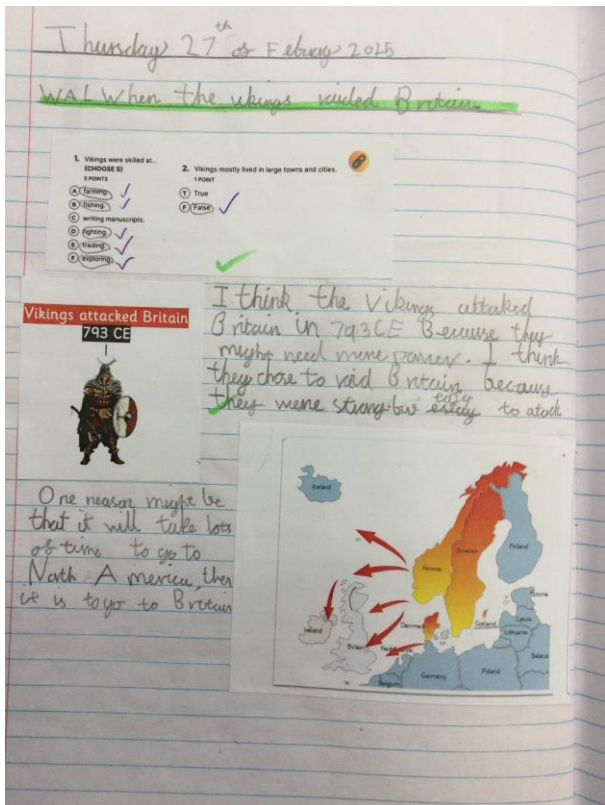 Thursday 27th of Febuary 2025
WAL When the vikings raided Britain
1. Vikings were skilled at...
(CHOOSE 5)
5 POINTS
A farming.
B fishing.
C writing manuscripts.
D fighting.
E trading.
F exploring.
2. Vikings mostly lived in large towns and cities.
1 POINT
T True
F False
Vikings attacked Britain
793 CE
I think the Vikings attaked
Britain in 793CE Because they
might need more power. I think
they chose to raid Britain because
they were strong but easy to atack
One reason might be
that it will take lots
of time to go to
North America then
it is to go to Britain
Iceland
Norway
Sweden
Finland
Estonia
Latvia
Lithuania
Gotland
Denmark
Ireland
Britain
Belgium
Germany
Poland